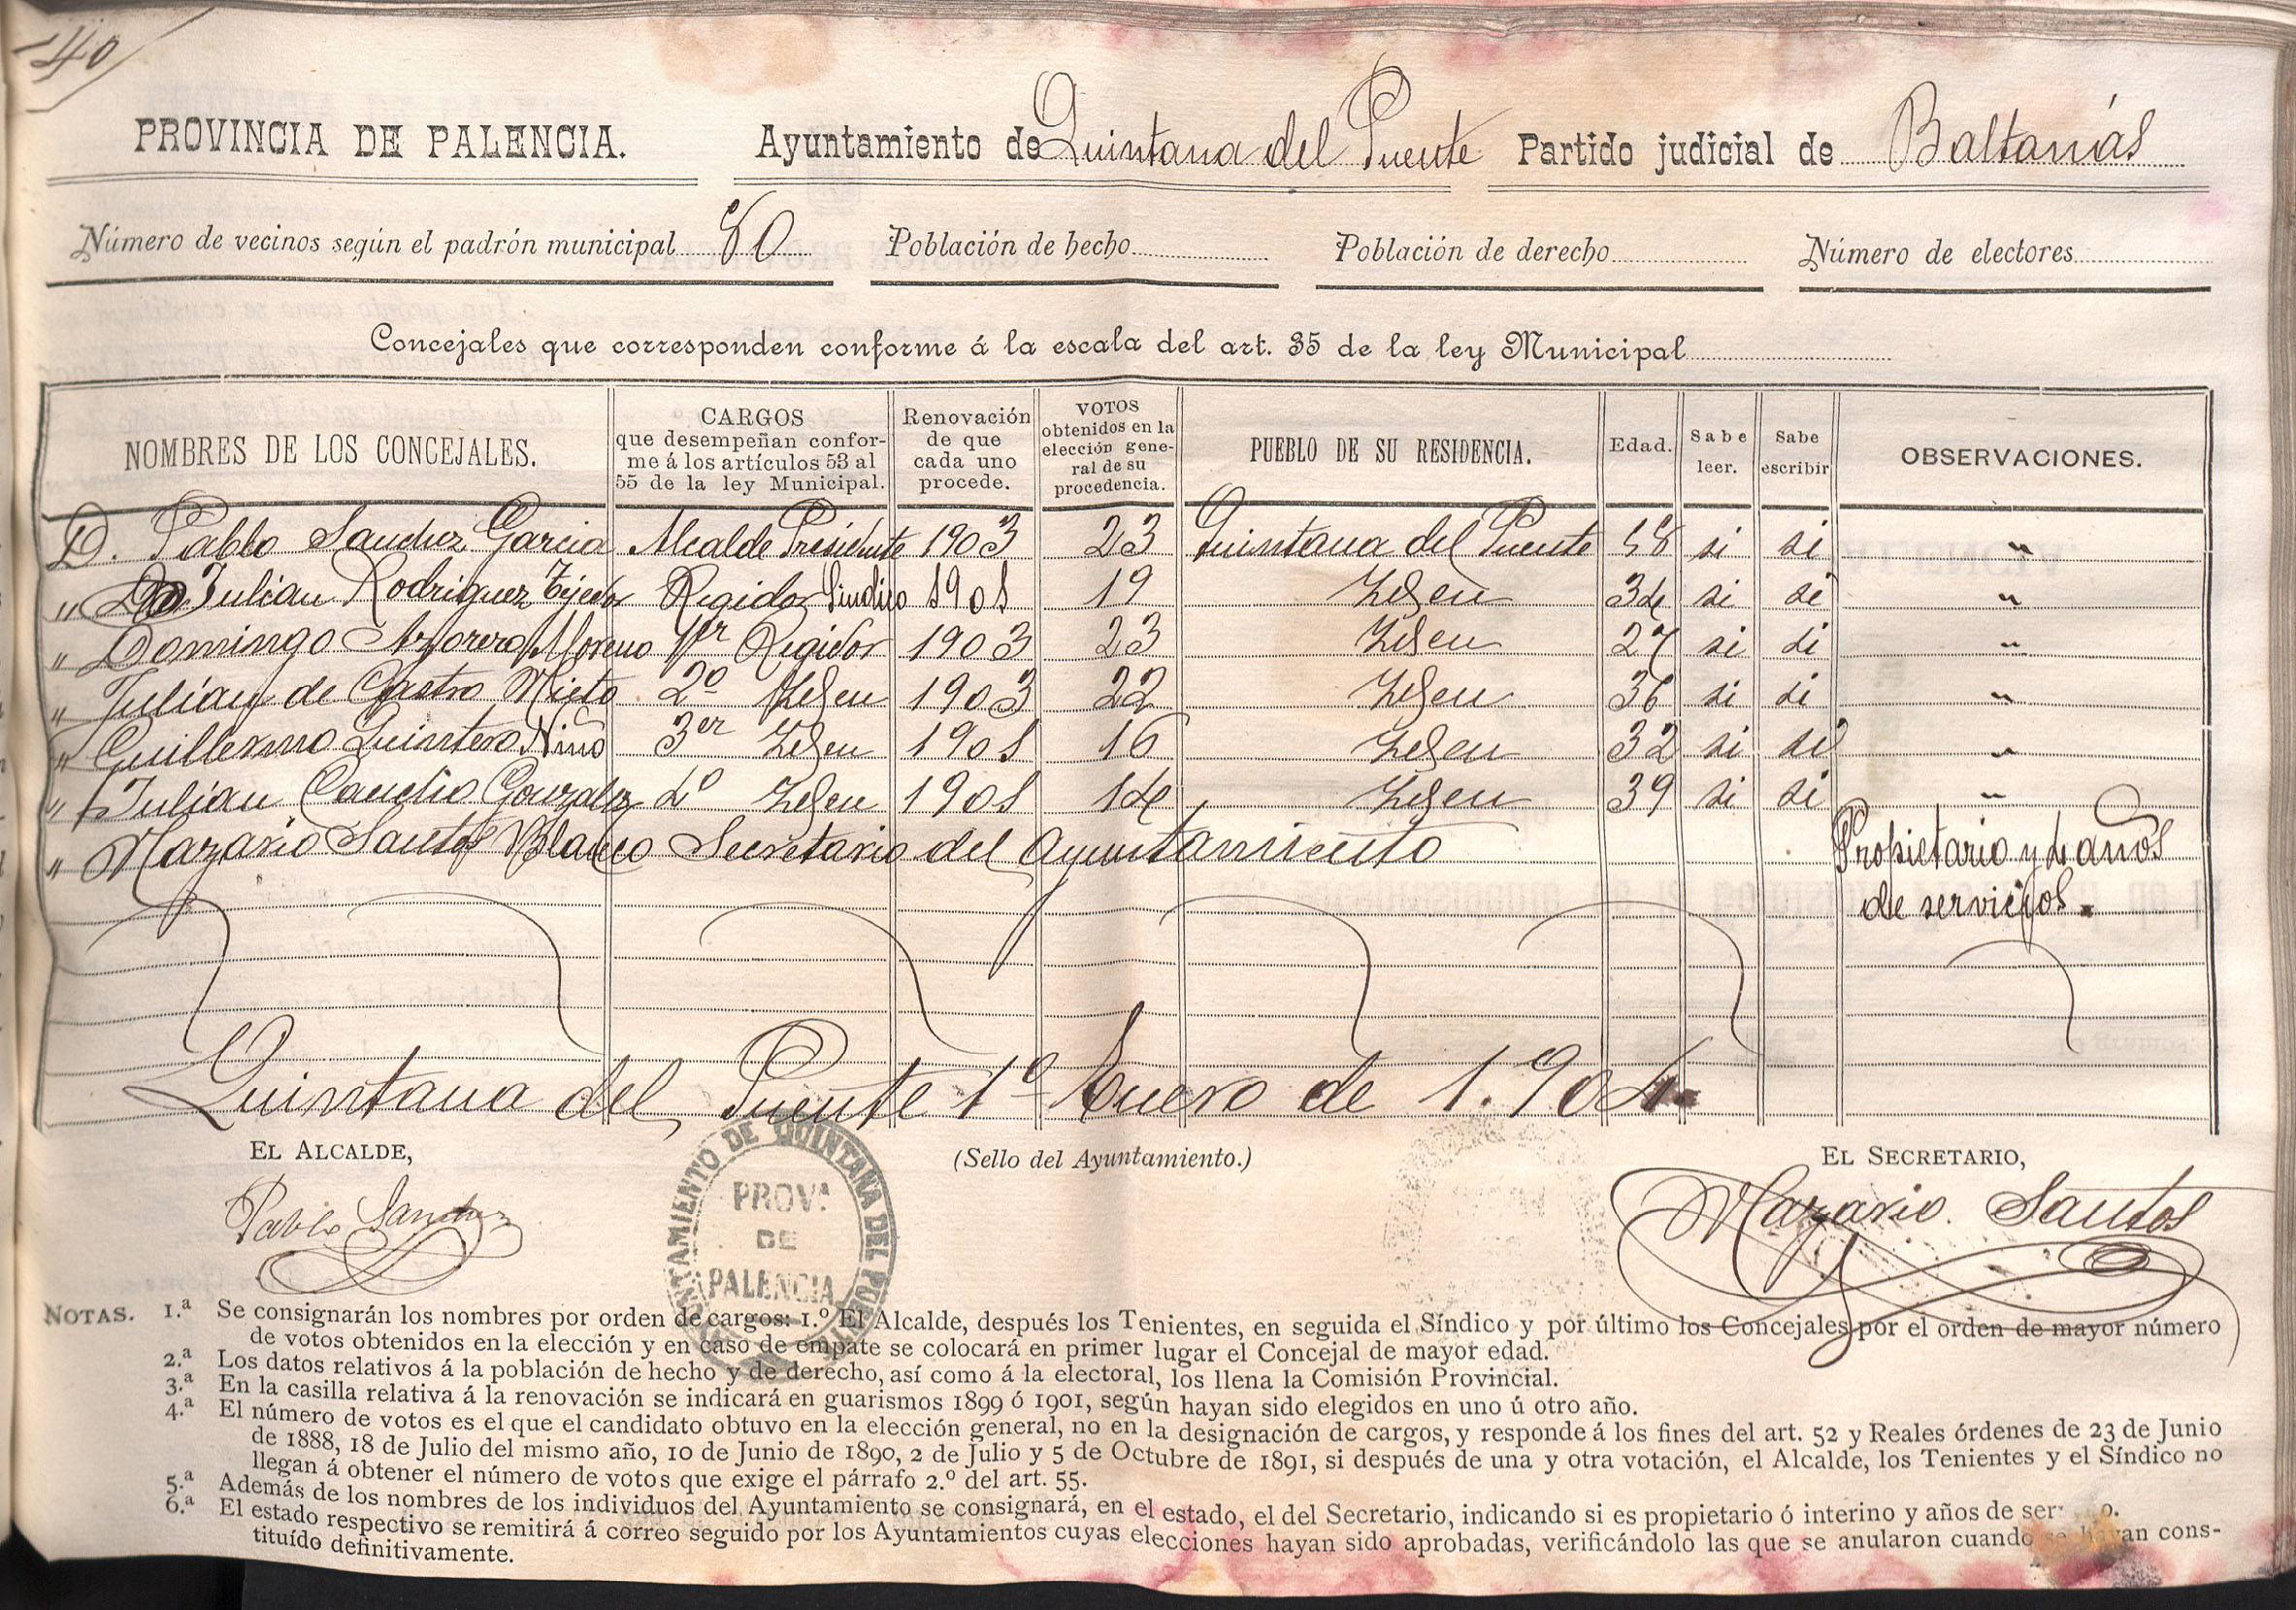 40
PROVINCIA DE PALENCIA. Ayuntamiento de Quintana del Puente Partido judicial de Baltanás
Número de vecinos según el padrón municipal 80 Población de hecho Población de derecho Número de electores
Concejales que corresponden conforme á la escala del art. 35 de la ley Municipal
NOMBRES DE LOS CONCEJALES. CARGOS que desempeñan conforme á los artículos 53 al 55 de la ley Municipal. Renovación de que cada uno procede. VOTOS obtenidos en la elección general de su procedencia. PUEBLO DE SU RESIDENCIA. Edad. Sabe leer. Sabe escribir OBSERVACIONES.
D. Pablo Sanchez Garcia Alcalde Presidente 1903 23 Quintana del Puente 58 si si "
" Julian Rodriguez Tejedor Regidor Sindico 1901 19 Idem 34 si si "
" Domingo Moreno 1er Regidor 1903 23 Idem 27 si si "
" Julian de Castro Nieto 2º Idem 1903 22 Idem 36 si si "
" Guillermo Quintero Niño 3er Idem 1901 16 Idem 32 si si "
" Julian Cancho Gonzalez 4º Idem 1901 14 Idem 39 si si "
" Nazario Santos Blanco Secretario del Ayuntamiento Propietario y 4 años
de servicios.
Quintana del Puente 1º Enero de 1.904.
EL ALCALDE, (Sello del Ayuntamiento.) EL SECRETARIO,
Pablo Sanchez Nazario Santos
AYUNTAMIENTO DE QUINTANA DEL PUENTE
PROVA
DE
PALENCIA
NOTAS. 1.ª Se consignarán los nombres por orden de cargos: 1.º El Alcalde, después los Tenientes, en seguida el Síndico y por último los Concejales por el orden de mayor número
de votos obtenidos en la elección y en caso de empate se colocará en primer lugar el Concejal de mayor edad.
2.ª Los datos relativos á la población de hecho y de derecho, así como á la electoral, los llena la Comisión Provincial.
3.ª En la casilla relativa á la renovación se indicará en guarismos 1899 ó 1901, según hayan sido elegidos en uno ú otro año.
4.ª El número de votos es el que el candidato obtuvo en la elección general, no en la designación de cargos, y responde á los fines del art. 52 y Reales órdenes de 23 de Junio
de 1888, 18 de Julio del mismo año, 10 de Junio de 1890, 2 de Julio y 5 de Octubre de 1891, si después de una y otra votación, el Alcalde, los Tenientes y el Síndico no
llegan á obtener el número de votos que exige el párrafo 2.º del art. 55.
5.ª Además de los nombres de los individuos del Ayuntamiento se consignará, en el estado, el del Secretario, indicando si es propietario ó interino y años de
6.ª El estado respectivo se remitirá á correo seguido por los Ayuntamientos cuyas elecciones hayan sido aprobadas, verificándolo las que se anularon cuando se hayan cons-
tituído definitivamente.